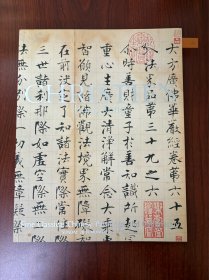 大方廣佛華嚴經卷第六十五
入法界品第三十九之六
尒時善財童子於善知識所起
重心生廣大清淨解常念大
智願見諸佛觀法界無障礙
在前決定了知諸法實際常
三世諸剎那際如虛空際無
法無分別際一切義無障礙際